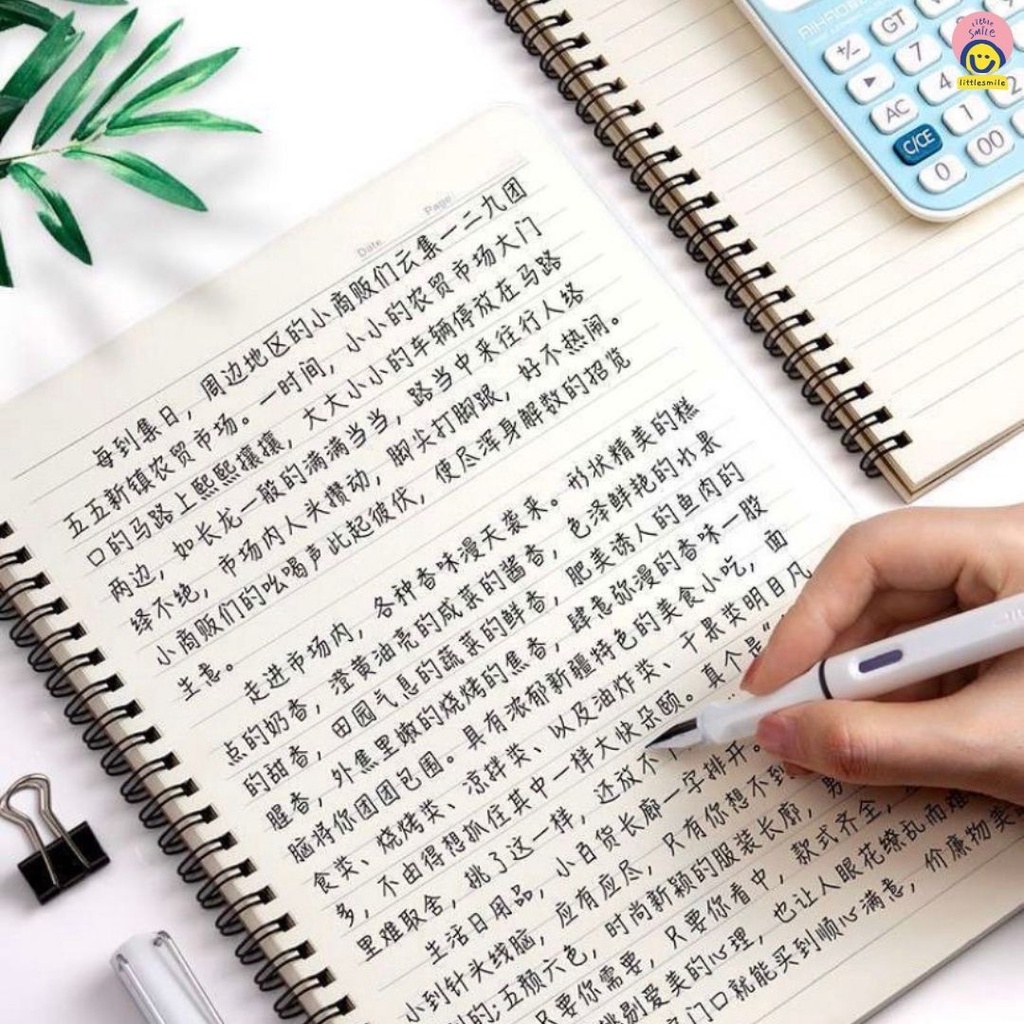 little
smile
littlesmile
AIHAO
GT
+/-
7
▶
4
AC
1
2
C/CE
0
00
Date
Page
每到集日，周边地区的小商贩们云集一二九团
五五新镇农贸市场。一时间，小小的农贸市场大门
口的马路上熙熙攘攘，大大小小的车辆停放在马路
两边，如长龙一般的满满当当，路当中来往行人络
绎不绝，市场内人头攒动，脚尖打脚跟，好不热闹。
小商贩们的吆喝声此起彼伏，使尽浑身解数的招览
生意。
走进市场内，各种香味漫天袭来。形状精美的糕
点的奶香，澄黄油亮的咸菜的酱香，色泽鲜艳的水果
的甜香，田园气息的蔬菜的鲜香，肥美诱人的鱼肉的
腥香，外焦里嫩的烧烤的焦香，肆意弥漫的香味一股
脑将你团团包围。具有浓郁新疆特色的美食小吃，面
食类、烧烤类、凉拌类、以及油炸类、干果类明目凡
多，不由得想抓住其中一样大快朵颐。真个是"
里难取舍，挑了这一样，还放不下
生活日用品，小百货长廊一字排开。
小到针头线脑，应有应尽，只有你想不到
的;五颜六色，时尚新颖的服装长廊，男
只要你需要，只要你看中，款式齐全，
挑剔爱美的心理，也让人眼花缭乱而难
门口就能买到顺心满意，价廉物美